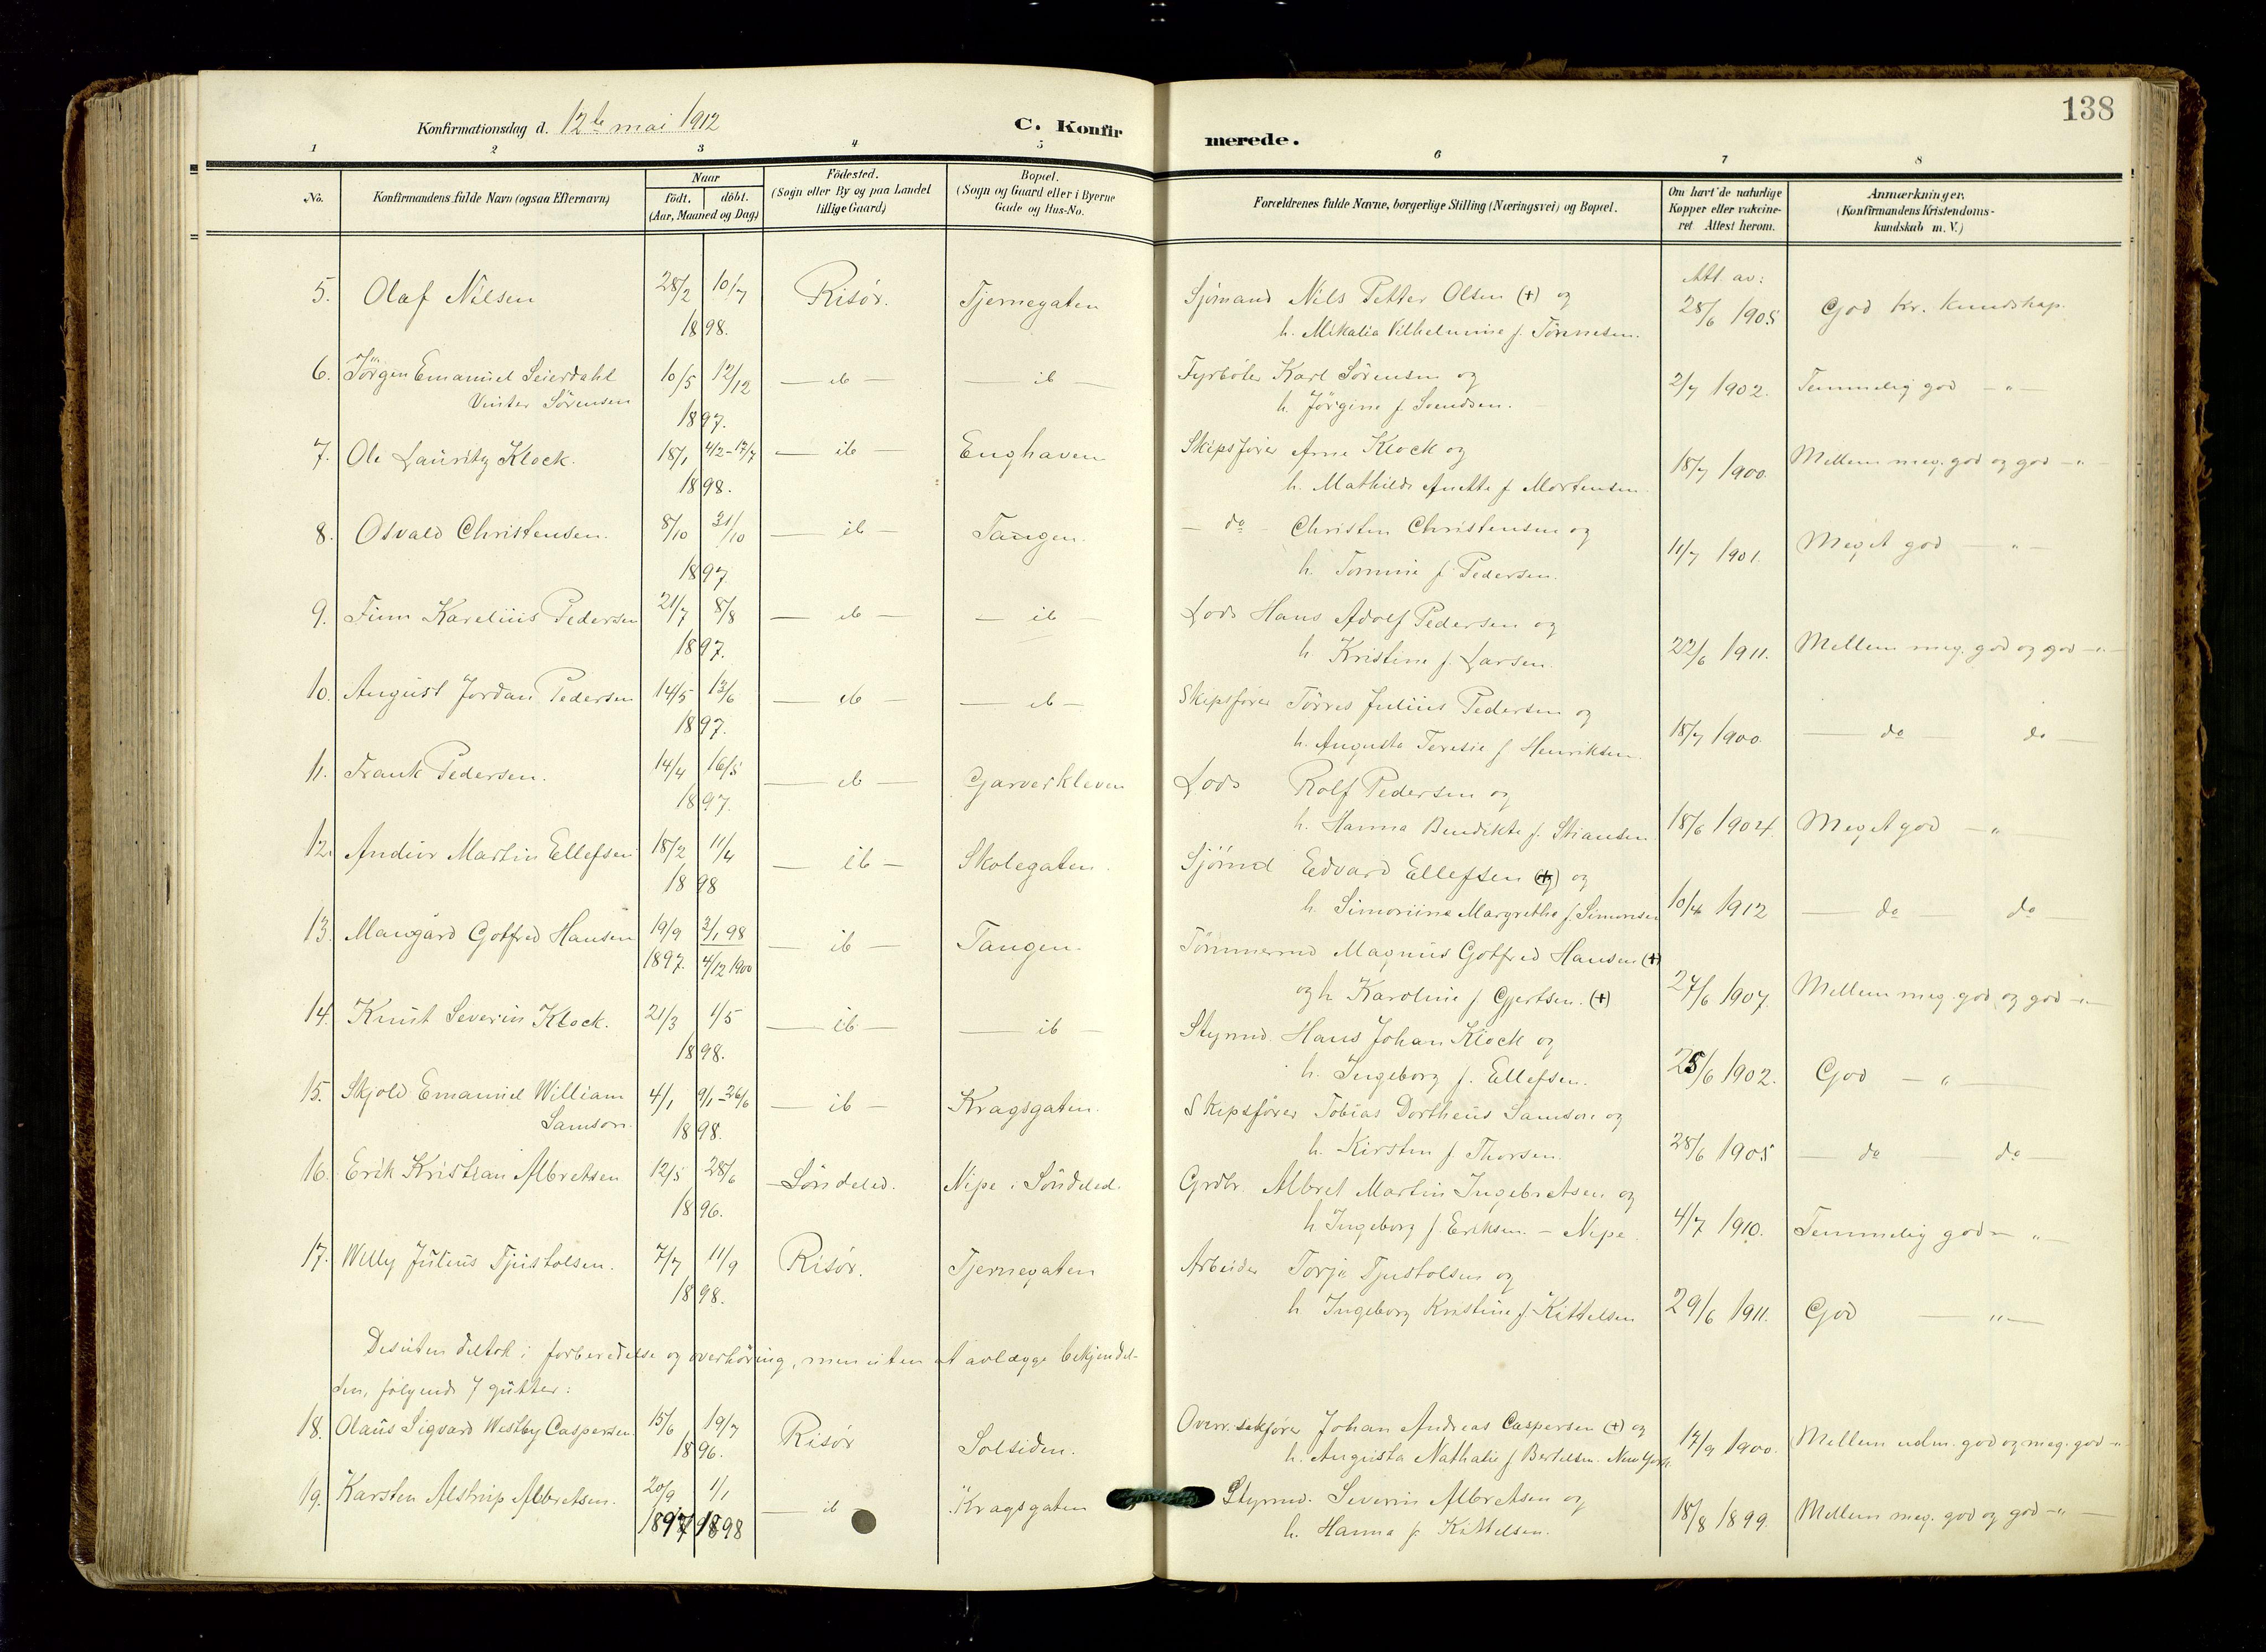 138
Konfirmationsdag d. 12te mai 1912
C. Konfirmerede.
1 2 3 4 5 6 7 8
No.
Konfirmandens fulde Navn (ogsaa Efternavn)
Naar
født. døbt.
(Aar, Maaned og Dag)
Fødested.
(Sogn eller By og paa Landet
tillige Gaard)
Bopæl.
(Sogn og Gaard eller i Byerne
Gade og Hus-No.
Forældrenes fulde Navne, borgerlige Stilling (Næringsvei) og Bopæl.
Om havt de naturlige
Kopper eller vakcine-
ret. Attest herom.
Anmærkninger.
(Konfirmandens Kristendoms-
kundskab m. V.)
Att. av:
5. Olaf Nilsen 28/2 10/7 Risör. Tjernegaten Sjömand Nils Petter Olsen (+) og 28/6 1905 God kr. kundskap.
1898. h. Mikalia Vilhelmine f. Tönnesen.
6. Jörgen Emanuel Seierdahl 10/5 12/12 — ib — — ib — Fyrböter Karl Sörensen og 2/7 1902. Temmelig god — " —
Vinter Sörensen 1897. h. Jörgine f. Svendsen.
7. Ole Lauritz Klock. 18/1 4/2-17/7 — ib — Enghaven Skipsfører Arne Klock og 18/7 1900. Mellem meg. god og god — " —
1898. h. Mathilde Anette f. Mortensen
8. Osvald Christensen. 8/10 31/10 — ib — Tangen. — do — Christen Christensen og 11/7 1901. Meget god — " —
1897 h. Tomine f. Pedersen.
9. Finn Karelius Pedersen 21/7 8/8 — ib — — ib — Lods Hans Adolf Pedersen og 22/6 1911. Mellem meg. god og god — " —
1897. h. Kristine f. Larsen.
10. August Jordan Pedersen 14/5 13/6 — ib — — ib — Skipsfører Törres Julius Pedersen og 18/7 1900. — do — do —
1897. h. Augusta Teresie f Henriksen
11. Frank Pedersen. 14/4 16/5 — ib — Garverkleven Lods Rolf Pedersen og 18/6 1904. Meget god — "
1897. h. Hanna Bendikte f. Stiansen
12. Andor Martin Ellefsen 18/2 11/4 — ib — Skolegaten. Sjömd Edvard Ellefsen (+) og 10/4 1912 — do — do —
1898 h. Simonine Margrethe f. Simonsen
13. Mangård Gotfred Hansen 19/9 2/1 98 — ib — Tangen. Tömmermd Magnus Gotfred Hansen (+) 27/6 1907. Mellem meg. god og god — " —
1897. 4/12 1900 og h. Karoline f Gjertsen. (+)
14. Knut Severin Klock. 21/3 1/5 — ib — — ib — Styrmd. Hans Johan Klock og 25/6 1902. God — " —
1898. h. Ingeborg f. Ellefsen.
15. Skjold Emanuel William 4/1 9/1-26/6 — ib — Kragsgaten. Skipsfører Tobias Dortheus Samson og 28/6 1905 — do — do —
Samson. 1898. h. Kirsten f Thorsen.
16. Erik Kristian Albretsen 12/5 28/6 Söndeled. Nipe i Söndeled. Grdbr. Albret Martin Ingebretsen og 4/7 1910. Temmelig god — " —
1896. h Ingeborg f. Eriksen — Nipe.
17. Willy Julius Tjustolsen. 7/7 11/9 Risör. Tjernegaten Arbeider Torje Tjustolsen og 29/6 1911. God — " —
1898. h Ingeborg Kristine f. Kittelsen
Desuten deltok i forberedelse og overhöring, men uten at avlægge bekjendel-
sen, følgende 7 gutter:
18. Olaus Sigvard Westby Caspersen. 15/6 19/7 Risör Solsiden. Overr.sakfører Johan Andreas Caspersen (+) og 17/9 1900. Mellem udm. god og meg. god — "
1896. h. Augusta Nathalie f Bertelsen. New York.
19. Karsten Alstrup Albretsen. 20/9 1/1 — ib — Kragsgaten Styrmd. Severin Albretsen og 18/8 1899. Mellem meg. god og god — " —
1897 1898 h. Hanna f. Kittelsen.